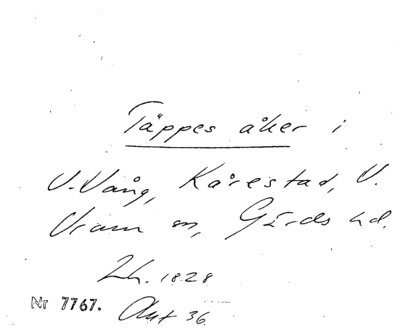 Täppes åker i
V. Vång, Kårestad, V.
Vram sn, Gärds hd.
Lh. 1828
Nr 7767. Akt 36